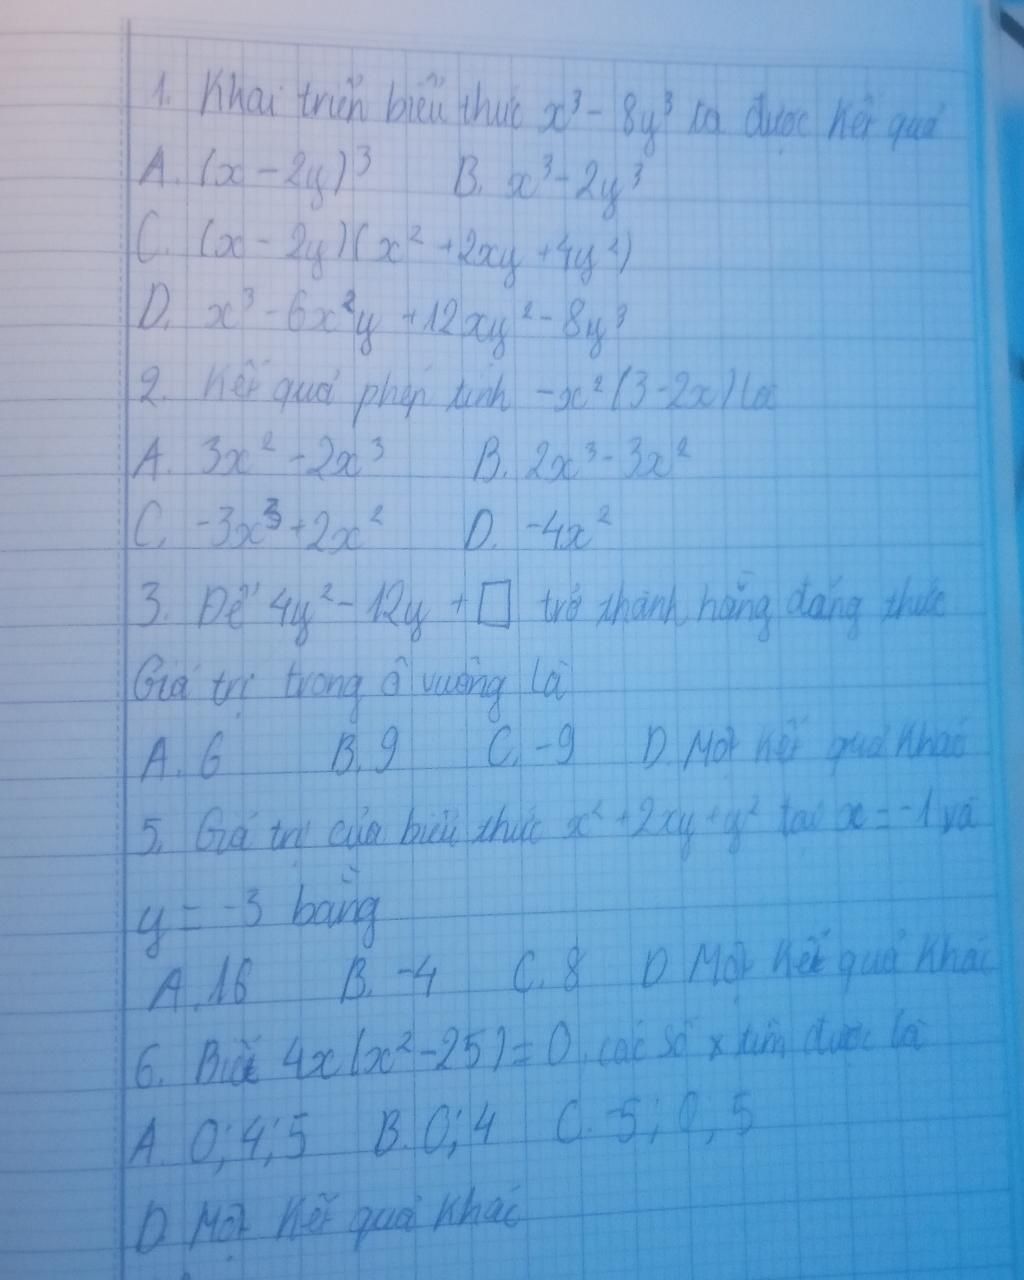 1. Khai triển biểu thức x³ - 8y³ ta được kết quả
A. (x - 2y)³ B. x³ - 2y³
C. (x - 2y)(x² + 2xy + 4y²)
D. x³ - 6x²y + 12xy² - 8y³
2. Kết quả phép tính -x²(3 - 2x) là
A. 3x² - 2x³ B. 2x³ - 3x²
C. -3x³ + 2x² D. -4x²
3. Để 4y² - 12y + □ trở thành hằng đẳng thức
Giá trị trong ô vuông là
A. 6 B. 9 C. -9 D Một kết quả khác
5. Giá trị của biểu thức x² + 2xy + y² tại x = -1 và
y = -3 bằng
A. 16 B. -4 C. 8 D Một kết quả khác
6. Biết 4x(x² - 25) = 0, các số x tìm được là
A. 0; 4; 5 B. 0; 4 C. -5; 0; 5
D Một kết quả khác